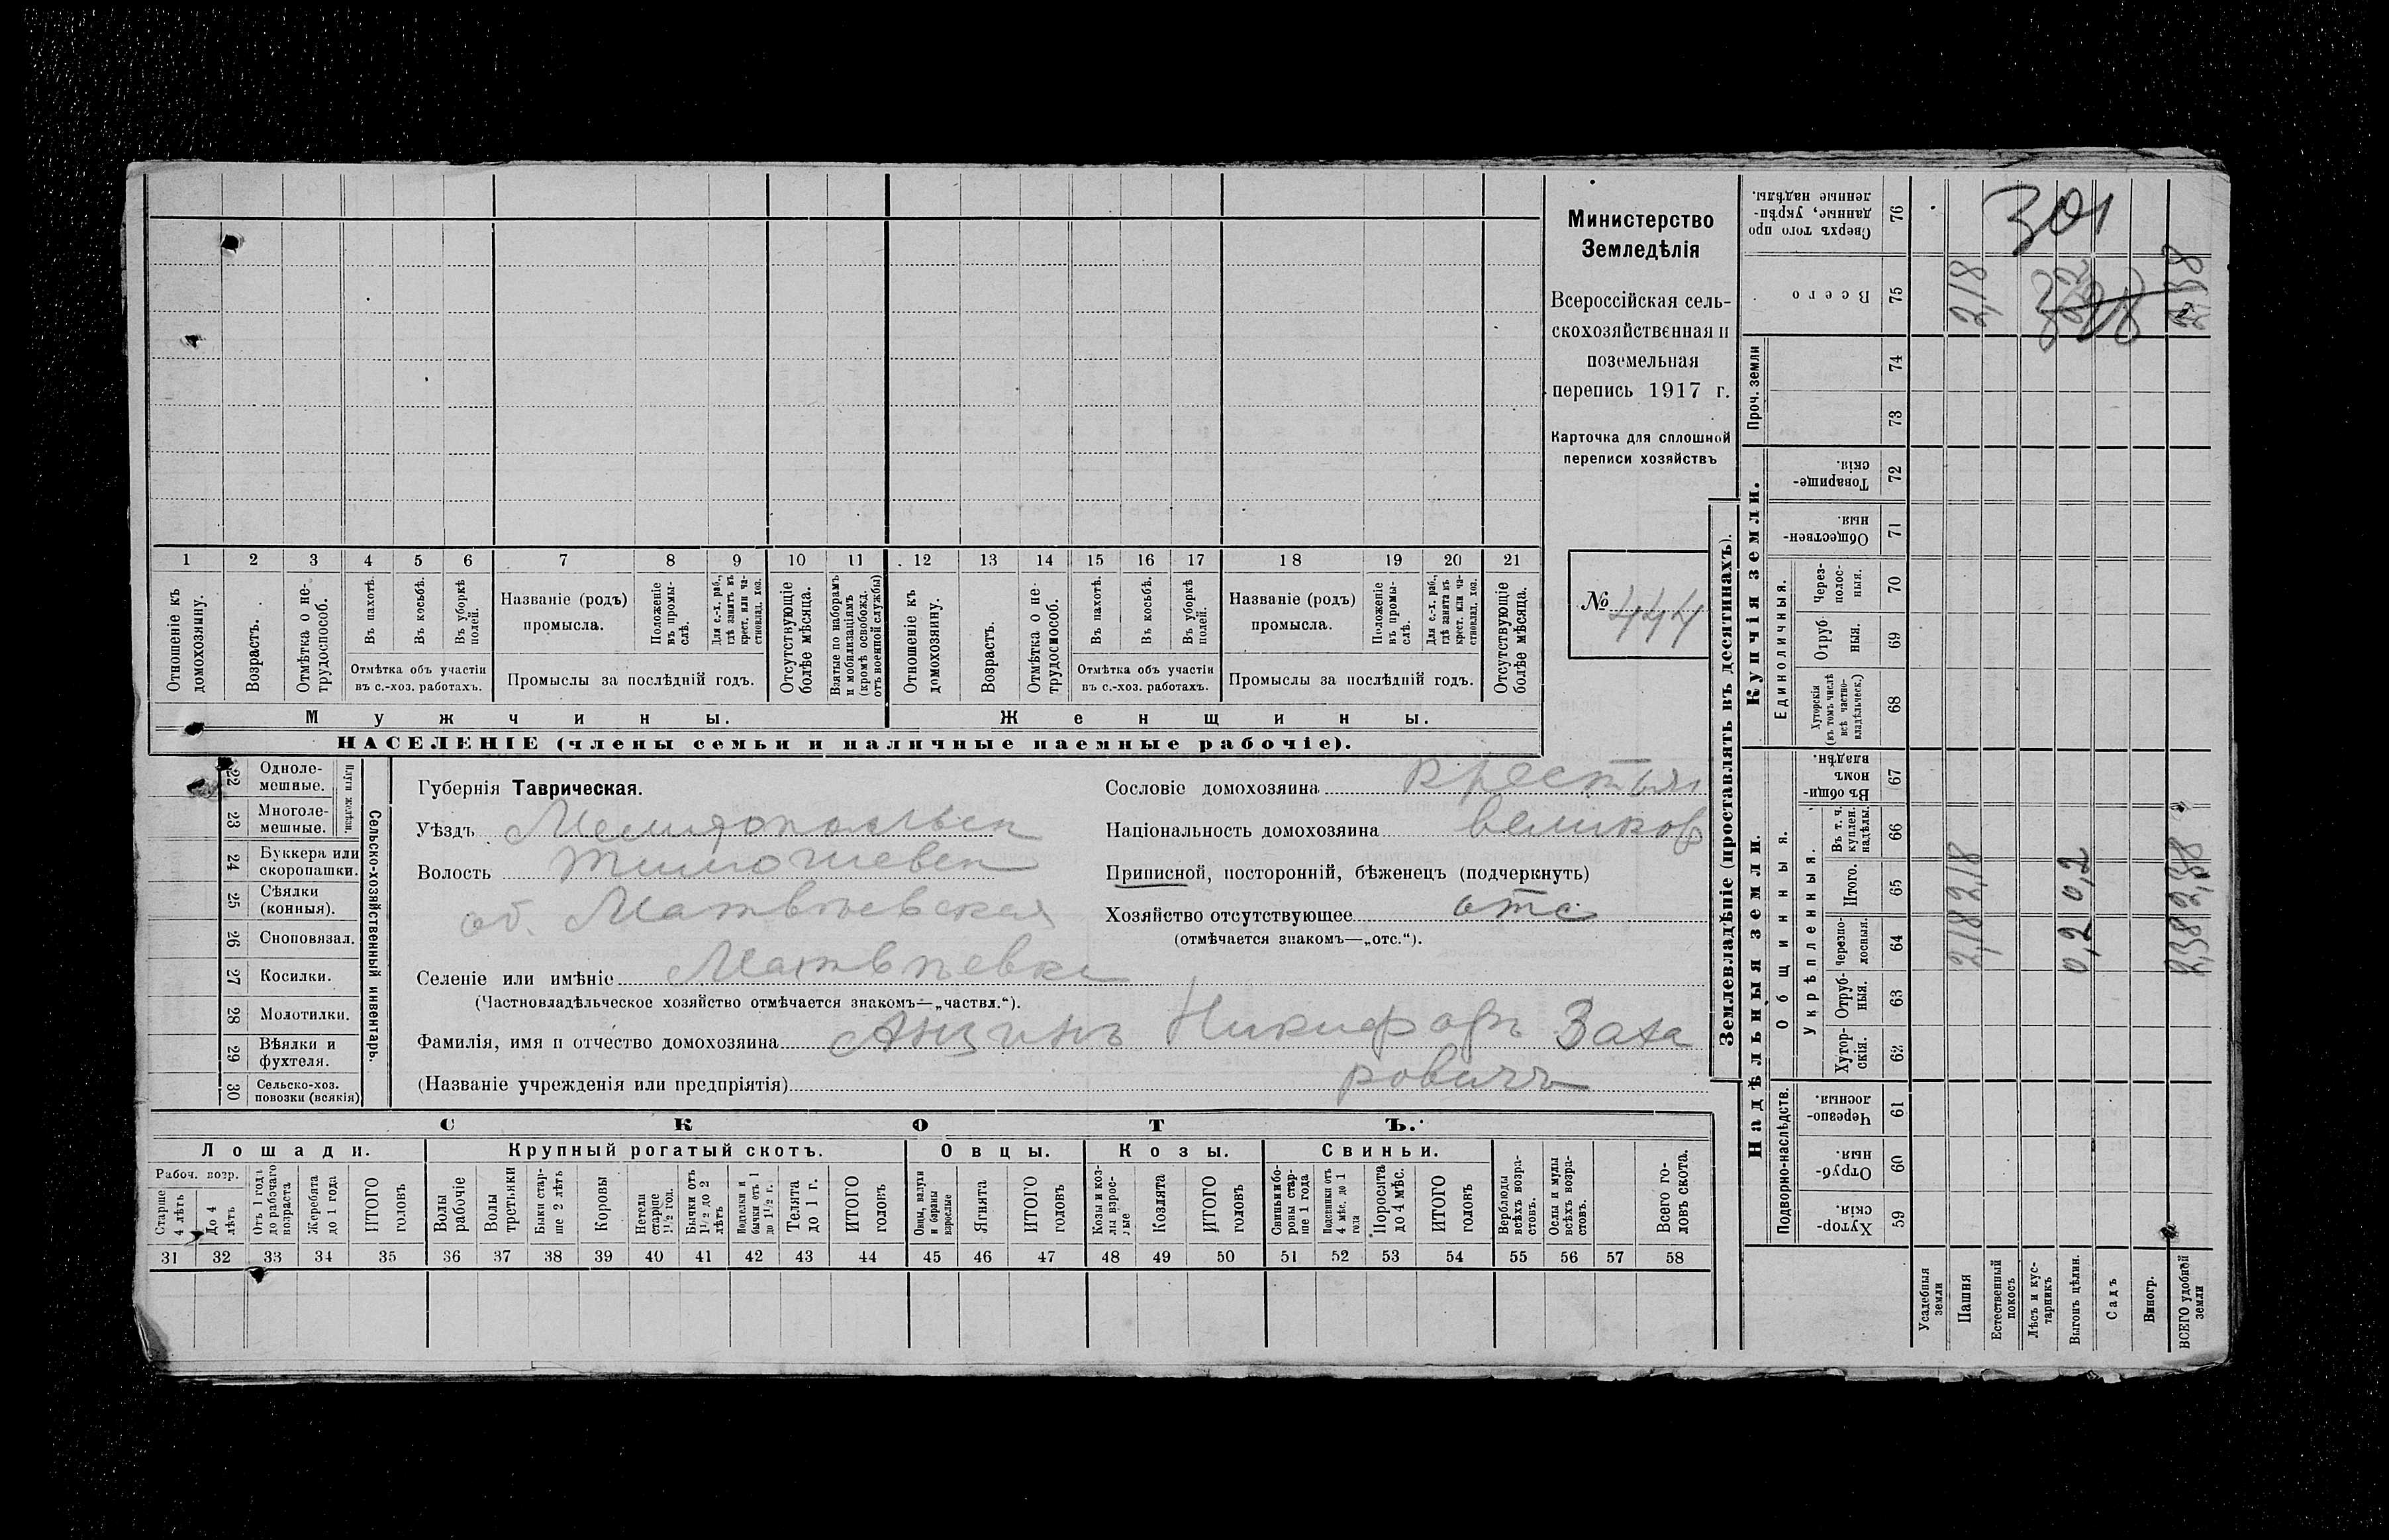 1 2 3 4 5 6 7 8 9 10 11 12 13 14 15 16 17 18 19 20 21
Отношеніе къ домохозяину.
Возрастъ.
Отмѣтка о не-трудоспособ.
Въ пахотѣ.
Въ косьбѣ.
Въ уборкѣ полей.
Отмѣтка объ участіи въ с.-хоз. работахъ.
Названіе (родъ) промысла.
Положеніе въ промы-слѣ.
Для с.-х. раб., гдѣ занятъ въ крест. или ча-стновлад. хоз.
Промыслы за послѣдній годъ.
Отсутствующіе болѣе мѣсяца.
Взятые по наборамъ и мобилизаціямъ (кромѣ освобожд. отъ военной службы)
Отношеніе къ домохозяину.
Возрастъ.
Отмѣтка о не-трудоспособ.
Въ пахотѣ.
Въ косьбѣ.
Въ уборкѣ полей.
Отмѣтка объ участіи въ с.-хоз. работахъ.
Названіе (родъ) промысла.
Положеніе въ промы-слѣ.
Для с.-х. раб., гдѣ занята въ крест. или ча-стновлад. хоз.
Промыслы за послѣдній годъ.
Отсутствующіе болѣе мѣсяца.
Мужчины.
Женщины.
НАСЕЛЕНІЕ (члены семьи и наличные наемные рабочіе).
Министерство
Земледѣлія
Всероссійская сель-
скохозяйственная и
поземельная
перепись 1917 г.
Карточка для сплошной
переписи хозяйствъ
№ 444
22 Одноле-мешные.
23 Многоле-мешные.
Плуги желѣзн.
24 Буккера или скоропашки.
25 Сѣялки (конныя).
26 Сноповязал.
27 Косилки.
28 Молотилки.
29 Вѣялки и фухтеля.
30 Сельско-хоз. повозки (всякія)
Сельско-хозяйственный инвентарь.
Губернія Таврическая.
Уѣздъ Мелитопольск
Волость Тимошевск
об. Матвѣевская
Селеніе или имѣніе Матвѣевка
(Частновладѣльческое хозяйство отмѣчается знакомъ—„частвл.“).
Фамилія, имя и отчество домохозяина Анцинъ Никифоръ Заха
(Названіе учрежденія или предпріятія) ровичъ
Сословіе домохозяина крестьян
Національность домохозяина великор
Приписной, посторонній, бѣженецъ (подчеркнуть)
Хозяйство отсутствующее отс
(отмѣчается знакомъ—„отс.“).
СКОТЪ.
Лошади. Крупный рогатый скотъ. Овцы. Козы. Свиньи.
Рабоч. возр.
Старше 4 лѣтъ
До 4 лѣтъ
Отъ 1 года до рабочаго возраста
Жеребята до 1 года
ИТОГО головъ
Волы рабочіе
Волы третьяки
Быки стар-ше 2 лѣтъ
Коровы
Нетели старше 1½ год.
Бычки отъ 1½ до 2 лѣтъ
Подтелки и бычки отъ 1 до 1½ г.
Телята до 1 г.
ИТОГО головъ
Овцы, валухи и бараны взрослые
Ягнята
ИТОГО головъ
Козы и коз-лы взрос-лые
Козлята
ИТОГО головъ
Свиньи и бо-ровы стар-ше 1 года
Подсвинки отъ 4 мѣс. до 1 года
Поросята до 4 мѣс.
ИТОГО головъ
Верблюды всѣхъ возра-стовъ.
Ослы и мулы всѣхъ возра-стовъ.
Всего го-ловъ скота.
31 32 33 34 35 36 37 38 39 40 41 42 43 44 45 46 47 48 49 50 51 52 53 54 55 56 57 58
Землевладѣніе (проставлять въ десятинахъ).
Надѣльныя земли.
Купчія земли.
Проч. земли
Подворно-наслѣдств.
Общинныя.
Укрѣпленныя.
Единоличныя.
Хутор-скія. 59
Отруб-ныя. 60
Черезпо-лосныя. 61
Хутор-скія. 62
Отруб-ныя. 63
Черезпо-лосныя. 64
Итого. 65
Въ т. ч. куплен. надѣлы 66
Въ общи-номъ владѣн. 67
Хуторскія (въ томъ числѣ всѣ частно-владѣльческ.) 68
Отруб-ныя. 69
Через-полос-ныя. 70
Обществен-ныя. 71
Товарище-скія. 72
73
74
Всего 75
Сверхъ того про-данные, укрѣп-ленные надѣлы. 76
Усадебныя земли
Пашня 2,18 2,18 2,18
Естественный покосъ
Лѣсъ и кус-тарникъ
Выгонъ цѣлин. 0,2 0,2
Садъ
Виногр.
ВСЕГО удобной земли 2,38 2,38 2,38
301